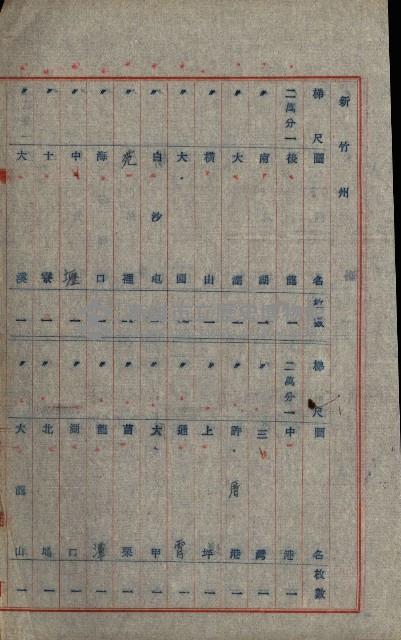 新竹州
梯尺 圖名 枚數
二萬分一 後龍 一
〃 南湖 一
〃 大湖 一
〃 橫山 一
〃 大園 一
〃 白沙屯 一
〃 苑裡 一
〃 海口 一
〃 中壢 一
〃 十寮 一
〃 大溪 一
梯尺 圖名 枚數
二萬分一 中港 一
〃 三灣 一
〃 許厝港 一
〃 上坪 一
〃 通霄 一
〃 大甲 一
〃 苗栗 一
〃 龍潭 一
〃 湖口 一
〃 北埔 一
〃 大龍山 一